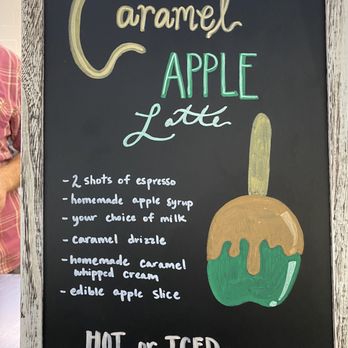 Caramel
APPLE
Latte
- 2 shots of espresso
- homemade apple syrup
- your choice of milk
- caramel drizzle
- homemade caramel
whipped cream
- edible apple slice
HOT or ICED